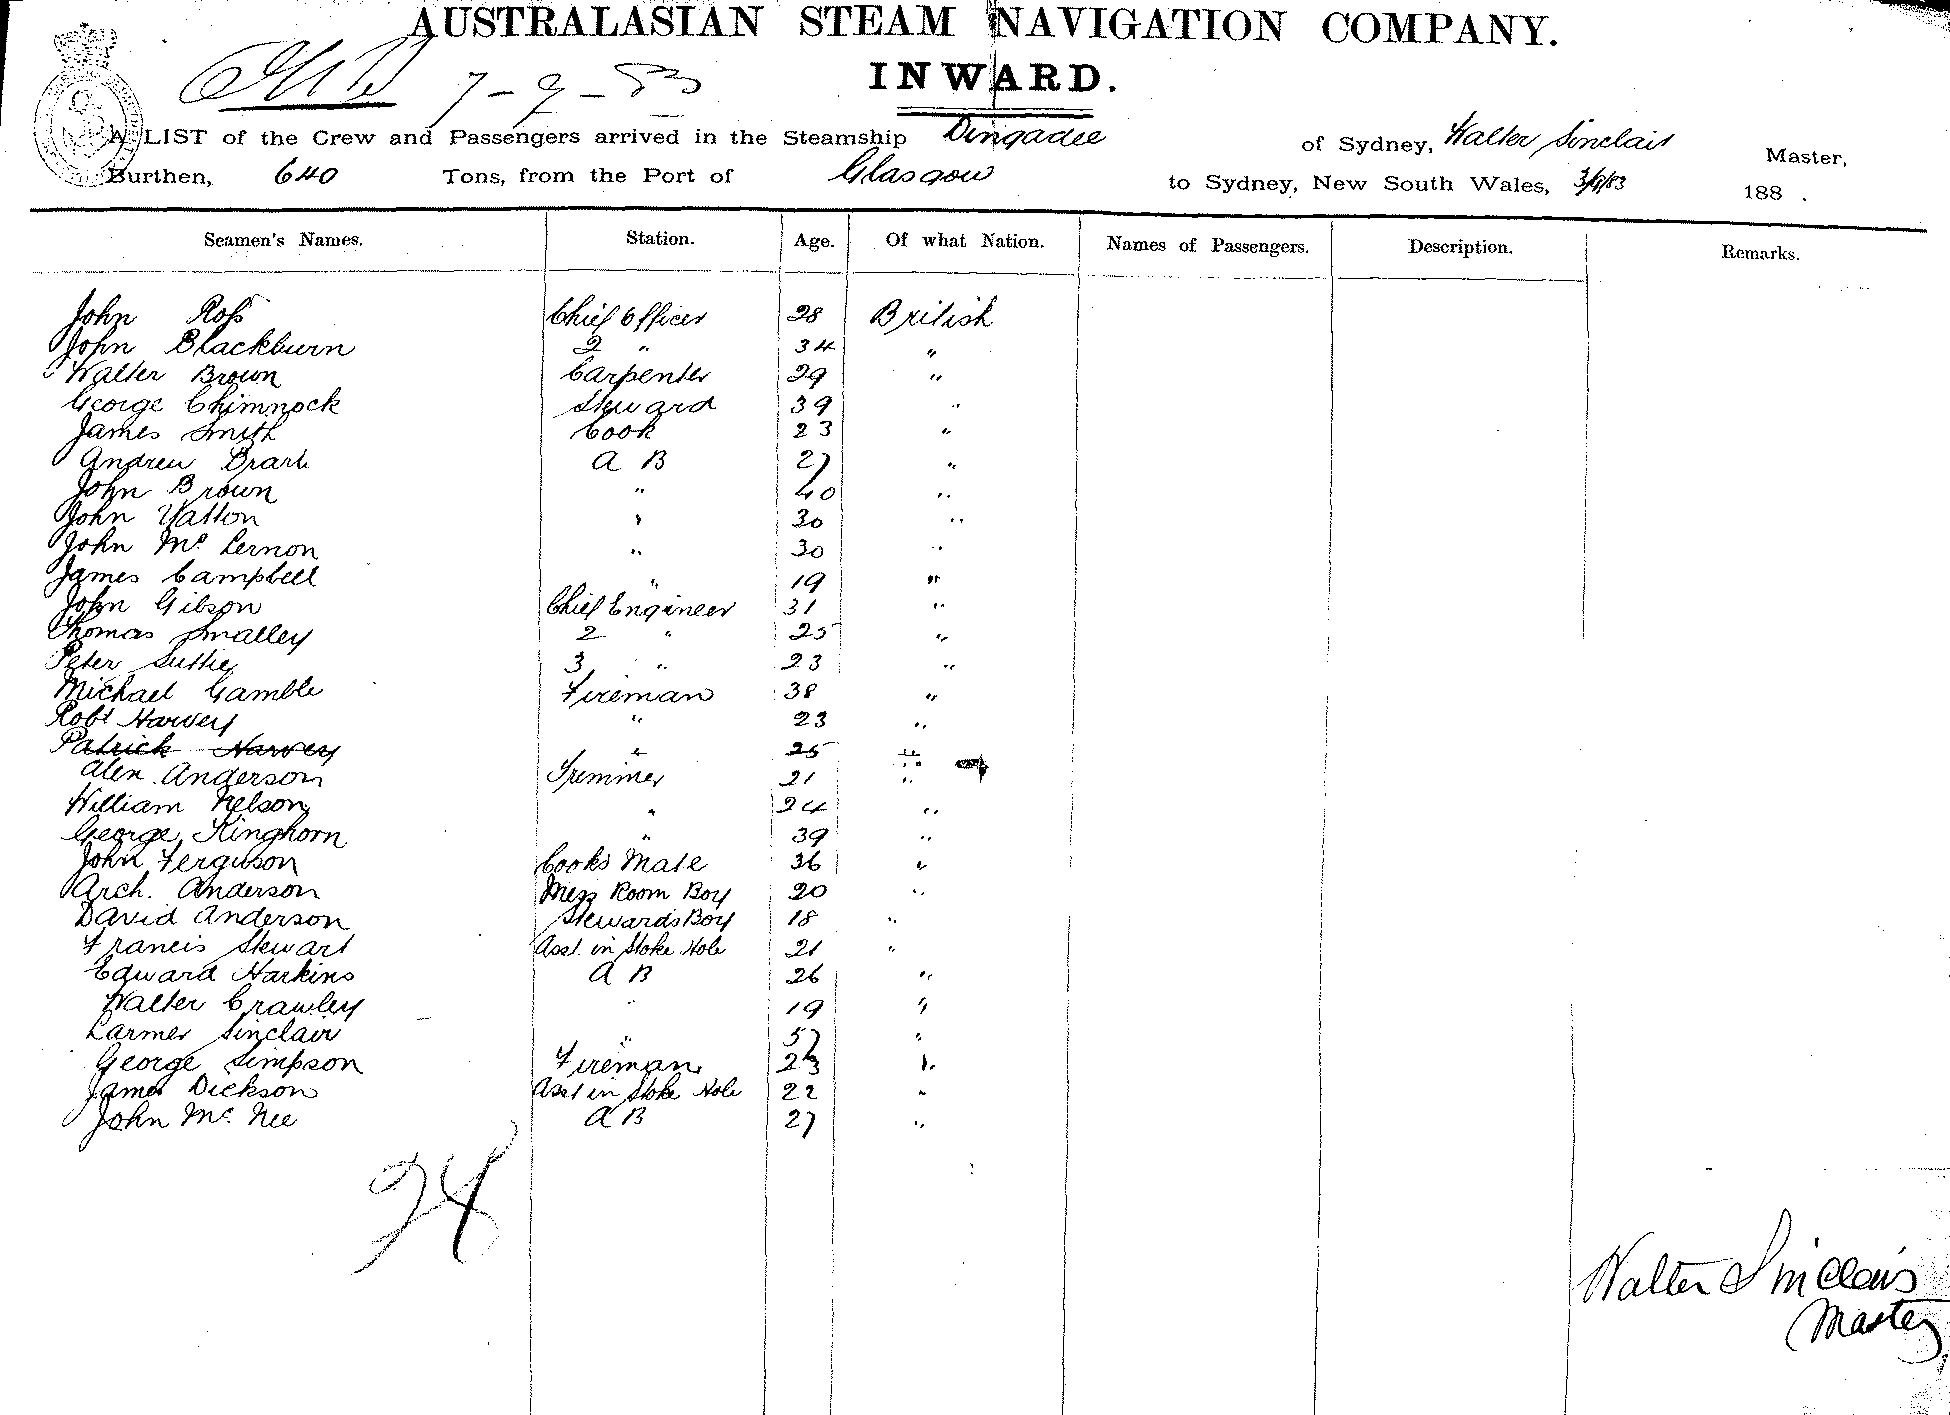 AUSTRALASIAN STEAM NAVIGATION COMPANY.
INWARD.
7-9-83
A LIST of the Crew and Passengers arrived in the Steamship Dingadee of Sydney, Walter Sinclair Master,
Burthen, 640 Tons, from the Port of Glasgow to Sydney, New South Wales, 3/9/83 188 .
Seamen's Names. Station. Age. Of what Nation. Names of Passengers. Description. Remarks.
John Ross Chief Officer 28 British
John Blackburn 2 " 34 "
Walter Brown Carpenter 29 "
George Chimnock Steward 39 "
James Smith Cook 23 "
Andrew A B 27 "
John Brown " 40 "
John Yatton " 30 "
John Mc Lernon " 30 "
James Campbell " 19 "
John Gibson Chief Engineer 31 "
Thomas Smalley 2 " 25 "
Peter Suttie 3 " 23 "
Michael Gamble Fireman 38 "
Robt Harvey " 23 "
Patrick Harvey " 25 "
Alex. Anderson Trimmer 21 "
William Nelson " 24 "
George Kinghorn " 39 "
John Ferguson Cooks Mate 36 "
Arch. Anderson Mess Room Boy 20 "
David Anderson Stewards Boy 18 "
Francis Stewart Asst. in Stoke Hole 21 "
Edward Harkins A B 26 "
Walter Crawley " 19 "
Larmer Sinclair " 57 "
George Simpson Fireman 23 "
James Dickson Asst in Stoke Hole 22 "
John Mc. Nee A B 27 "
Walter Sinclair
Master